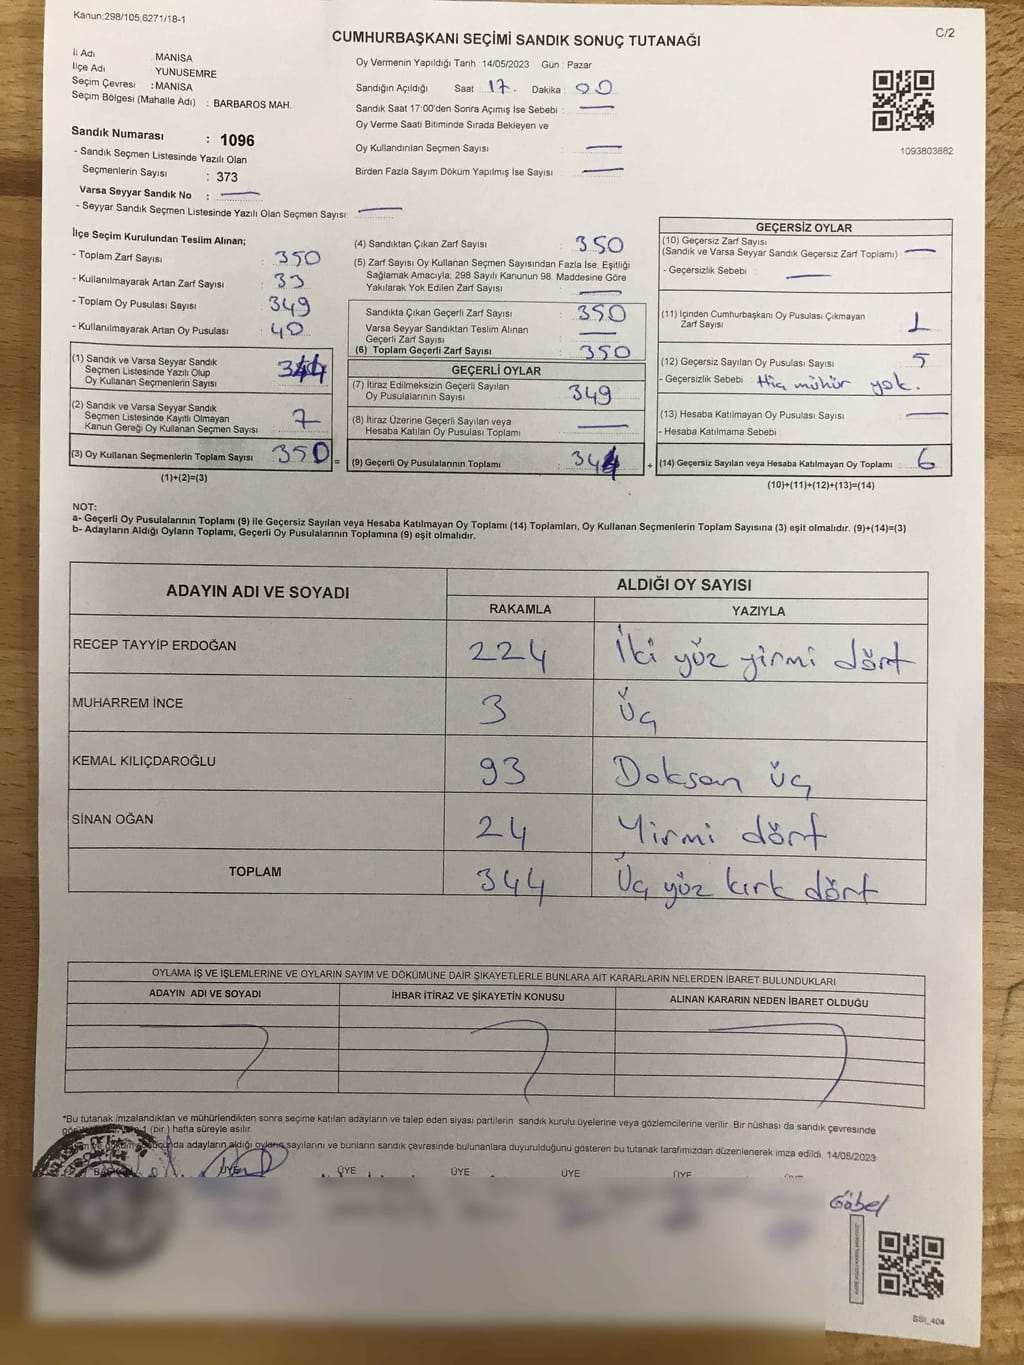 Kanun;298/105,6271/18-1
C/2
CUMHURBAŞKANI SEÇİMİ SANDIK SONUÇ TUTANAĞI
İl Adı : MANİSA
İlçe Adı : YUNUSEMRE
Seçim Çevresi : MANİSA
Seçim Bölgesi (Mahalle Adı) : BARBAROS MAH.
Sandık Numarası : 1096
- Sandık Seçmen Listesinde Yazılı Olan
Seçmenlerin Sayısı : 373
Varsa Seyyar Sandık No : —
- Seyyar Sandık Seçmen Listesinde Yazılı Olan Seçmen Sayısı: —
Oy Vermenin Yapıldığı Tarih : 14/05/2023 Gün : Pazar
Sandığın Açıldığı Saat 17. Dakika : 00
Sandık Saat 17:00'den Sonra Açımış İse Sebebi : —
Oy Verme Saati Bitiminde Sırada Bekleyen ve
Oy Kullandırılan Seçmen Sayısı : —
Birden Fazla Sayım Döküm Yapılmış İse Sayısı : —
1093803882
İlçe Seçim Kurulundan Teslim Alınan;
- Toplam Zarf Sayısı : 350
- Kullanılmayarak Artan Zarf Sayısı : 33
- Toplam Oy Pusulası Sayısı : 349
- Kullanılmayarak Artan Oy Pusulası : 40
(1) Sandık ve Varsa Seyyar Sandık
Seçmen Listesinde Yazılı Olup
Oy Kullanan Seçmenlerin Sayısı :
(2) Sandık ve Varsa Seyyar Sandık
Seçmen Listesinde Kayıtlı Olmayan
Kanun Gereği Oy Kullanan Seçmen Sayısı : 7
(3) Oy Kullanan Seçmenlerin Toplam Sayısı : 350 =
(1)+(2)=(3)
(4) Sandıktan Çıkan Zarf Sayısı : 350
(5) Zarf Sayısı Oy Kullanan Seçmen Sayısından Fazla İse, Eşitliği
Sağlamak Amacıyla; 298 Sayılı Kanunun 98. Maddesine Göre
Yakılarak Yok Edilen Zarf Sayısı : —
Sandıkta Çıkan Geçerli Zarf Sayısı : 350
Varsa Seyyar Sandıktan Teslim Alınan
Geçerli Zarf Sayısı : —
(6) Toplam Geçerli Zarf Sayısı : 350
GEÇERLİ OYLAR
(7) İtiraz Edilmeksizin Geçerli Sayılan
Oy Pusulalarının Sayısı : 349
(8) İtiraz Üzerine Geçerli Sayılan veya
Hesaba Katılan Oy Pusulası Toplamı : —
(9) Geçerli Oy Pusulalarının Toplamı : 344 +
GEÇERSİZ OYLAR
(10) Geçersiz Zarf Sayısı
(Sandık ve Varsa Seyyar Sandık Geçersiz Zarf Toplamı) : —
- Geçersizlik Sebebi : —
(11) İçinden Cumhurbaşkanı Oy Pusulası Çıkmayan
Zarf Sayısı : 1
(12) Geçersiz Sayılan Oy Pusulası Sayısı : 5
- Geçersizlik Sebebi : Hiç mühür yok.
(13) Hesaba Katılmayan Oy Pusulası Sayısı : —
- Hesaba Katılmama Sebebi :
(14) Geçersiz Sayılan veya Hesaba Katılmayan Oy Toplamı : 6
(10)+(11)+(12)+(13)=(14)
NOT:
a- Geçerli Oy Pusulalarının Toplamı (9) ile Geçersiz Sayılan veya Hesaba Katılmayan Oy Toplamı (14) Toplamları, Oy Kullanan Seçmenlerin Toplam Sayısına (3) eşit olmalıdır. (9)+(14)=(3)
b- Adayların Aldığı Oyların Toplamı, Geçerli Oy Pusulalarının Toplamına (9) eşit olmalıdır.
ADAYIN ADI VE SOYADI ALDIĞI OY SAYISI
RAKAMLA YAZIYLA
RECEP TAYYİP ERDOĞAN 224 İki yüz yirmi dört
MUHARREM İNCE 3 Üç
KEMAL KILIÇDAROĞLU 93 Doksan üç
SİNAN OĞAN 24 Yirmi dört
TOPLAM 344 Üç yüz kırk dört
OYLAMA İŞ VE İŞLEMLERİNE VE OYLARIN SAYIM VE DÖKÜMÜNE DAİR ŞİKAYETLERLE BUNLARA AİT KARARLARIN NELERDEN İBARET BULUNDUKLARI
ADAYIN ADI VE SOYADI İHBAR İTİRAZ VE ŞİKAYETİN KONUSU ALINAN KARARIN NEDEN İBARET OLDUĞU
*Bu tutanak imzalandıktan ve mühürlendikten sonra seçime katılan adayların ve talep eden siyasi partilerin sandık kurulu üyelerine veya gözlemcilerine verilir. Bir nüshası da sandık çevresinde
1 (bir ) hafta süreyle asılır.
adayların aldığı oyların sayılarını ve bunların sandık çevresinde bulunanlara duyurulduğunu gösteren bu tutanak tarafımızdan düzenlenerek imza edildi. 14/05/2023
ÜYE ÜYE ÜYE ÜYE ÜYE
Göbel
BSI_404